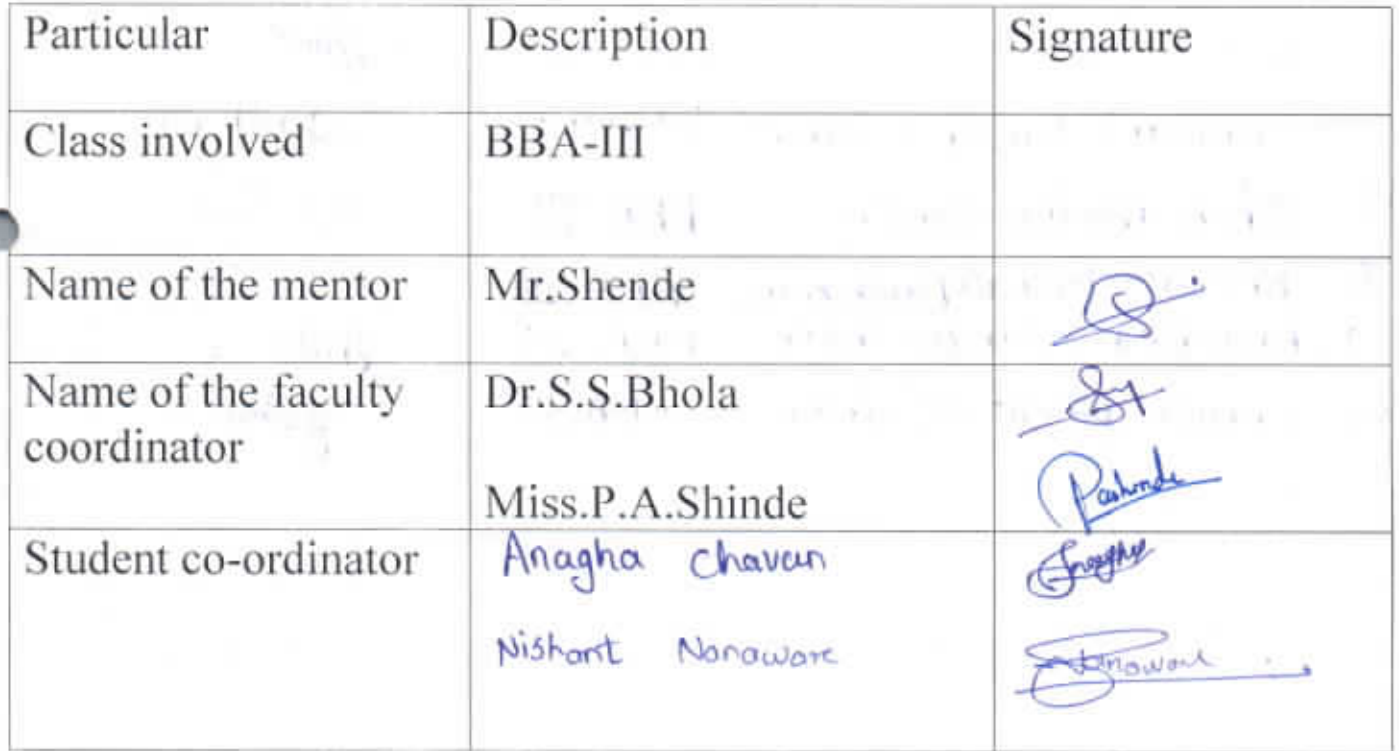 Particular Description Signature
Class involved BBA-III
Name of the mentor Mr.Shende
Name of the faculty Dr.S.S.Bhola
coordinator
Miss.P.A.Shinde
Pashinde
Student co-ordinator Anagha Chavan
Nishant Nanaware